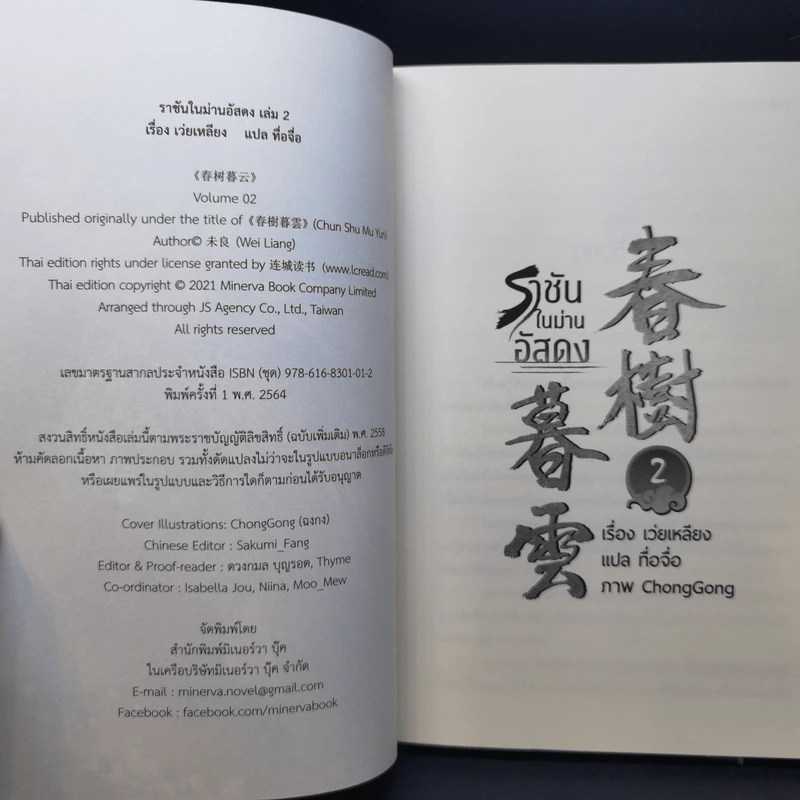 ราชันในม่านอัสดง เล่ม 2
เรื่อง เว่ยเหลียง แปล ที่อจื่อ
《春树暮云》
Volume 02
Published originally under the title of《春樹暮雲》(Chun Shu Mu Yun)
Author© 未良 (Wei Liang)
Thai edition rights under license granted by 连城读书 (www.lcread.com)
Thai edition copyright © 2021 Minerva Book Company Limited
Arranged through JS Agency Co., Ltd., Taiwan
All rights reserved
เลขมาตรฐานสากลประจำหนังสือ ISBN (ชุด) 978-616-8301-01-2
พิมพ์ครั้งที่ 1 พ.ศ. 2564
สงวนสิทธิ์หนังสือเล่มนี้ตามพระราชบัญญัติลิขสิทธิ์ (ฉบับเพิ่มเติม) พ.ศ. 2558
ห้ามคัดลอกเนื้อหา ภาพประกอบ รวมทั้งดัดแปลงไม่ว่าจะในรูปแบบอนาล็อกหรือดิจิทัล
หรือเผยแพร่ในรูปแบบและวิธีการใดก็ตามก่อนได้รับอนุญาต
Cover Illustrations: ChongGong (ฉงกง)
Chinese Editor : Sakumi_Fang
Editor & Proof-reader : ดวงกมล บุญรอด, Thyme
Co-ordinator : Isabella Jou, Niina, Moo_Mew
จัดพิมพ์โดย
สำนักพิมพ์มิเนอร์วา บุ๊ค
ในเครือบริษัทมิเนอร์วา บุ๊ค จำกัด
E-mail : minerva.novel@gmail.com
Facebook : facebook.com/minervabook
春樹
暮雲
ราชัน
ในม่าน
อัสดง
2
เรื่อง เว่ยเหลียง
แปล ที่อจื่อ
ภาพ ChongGong